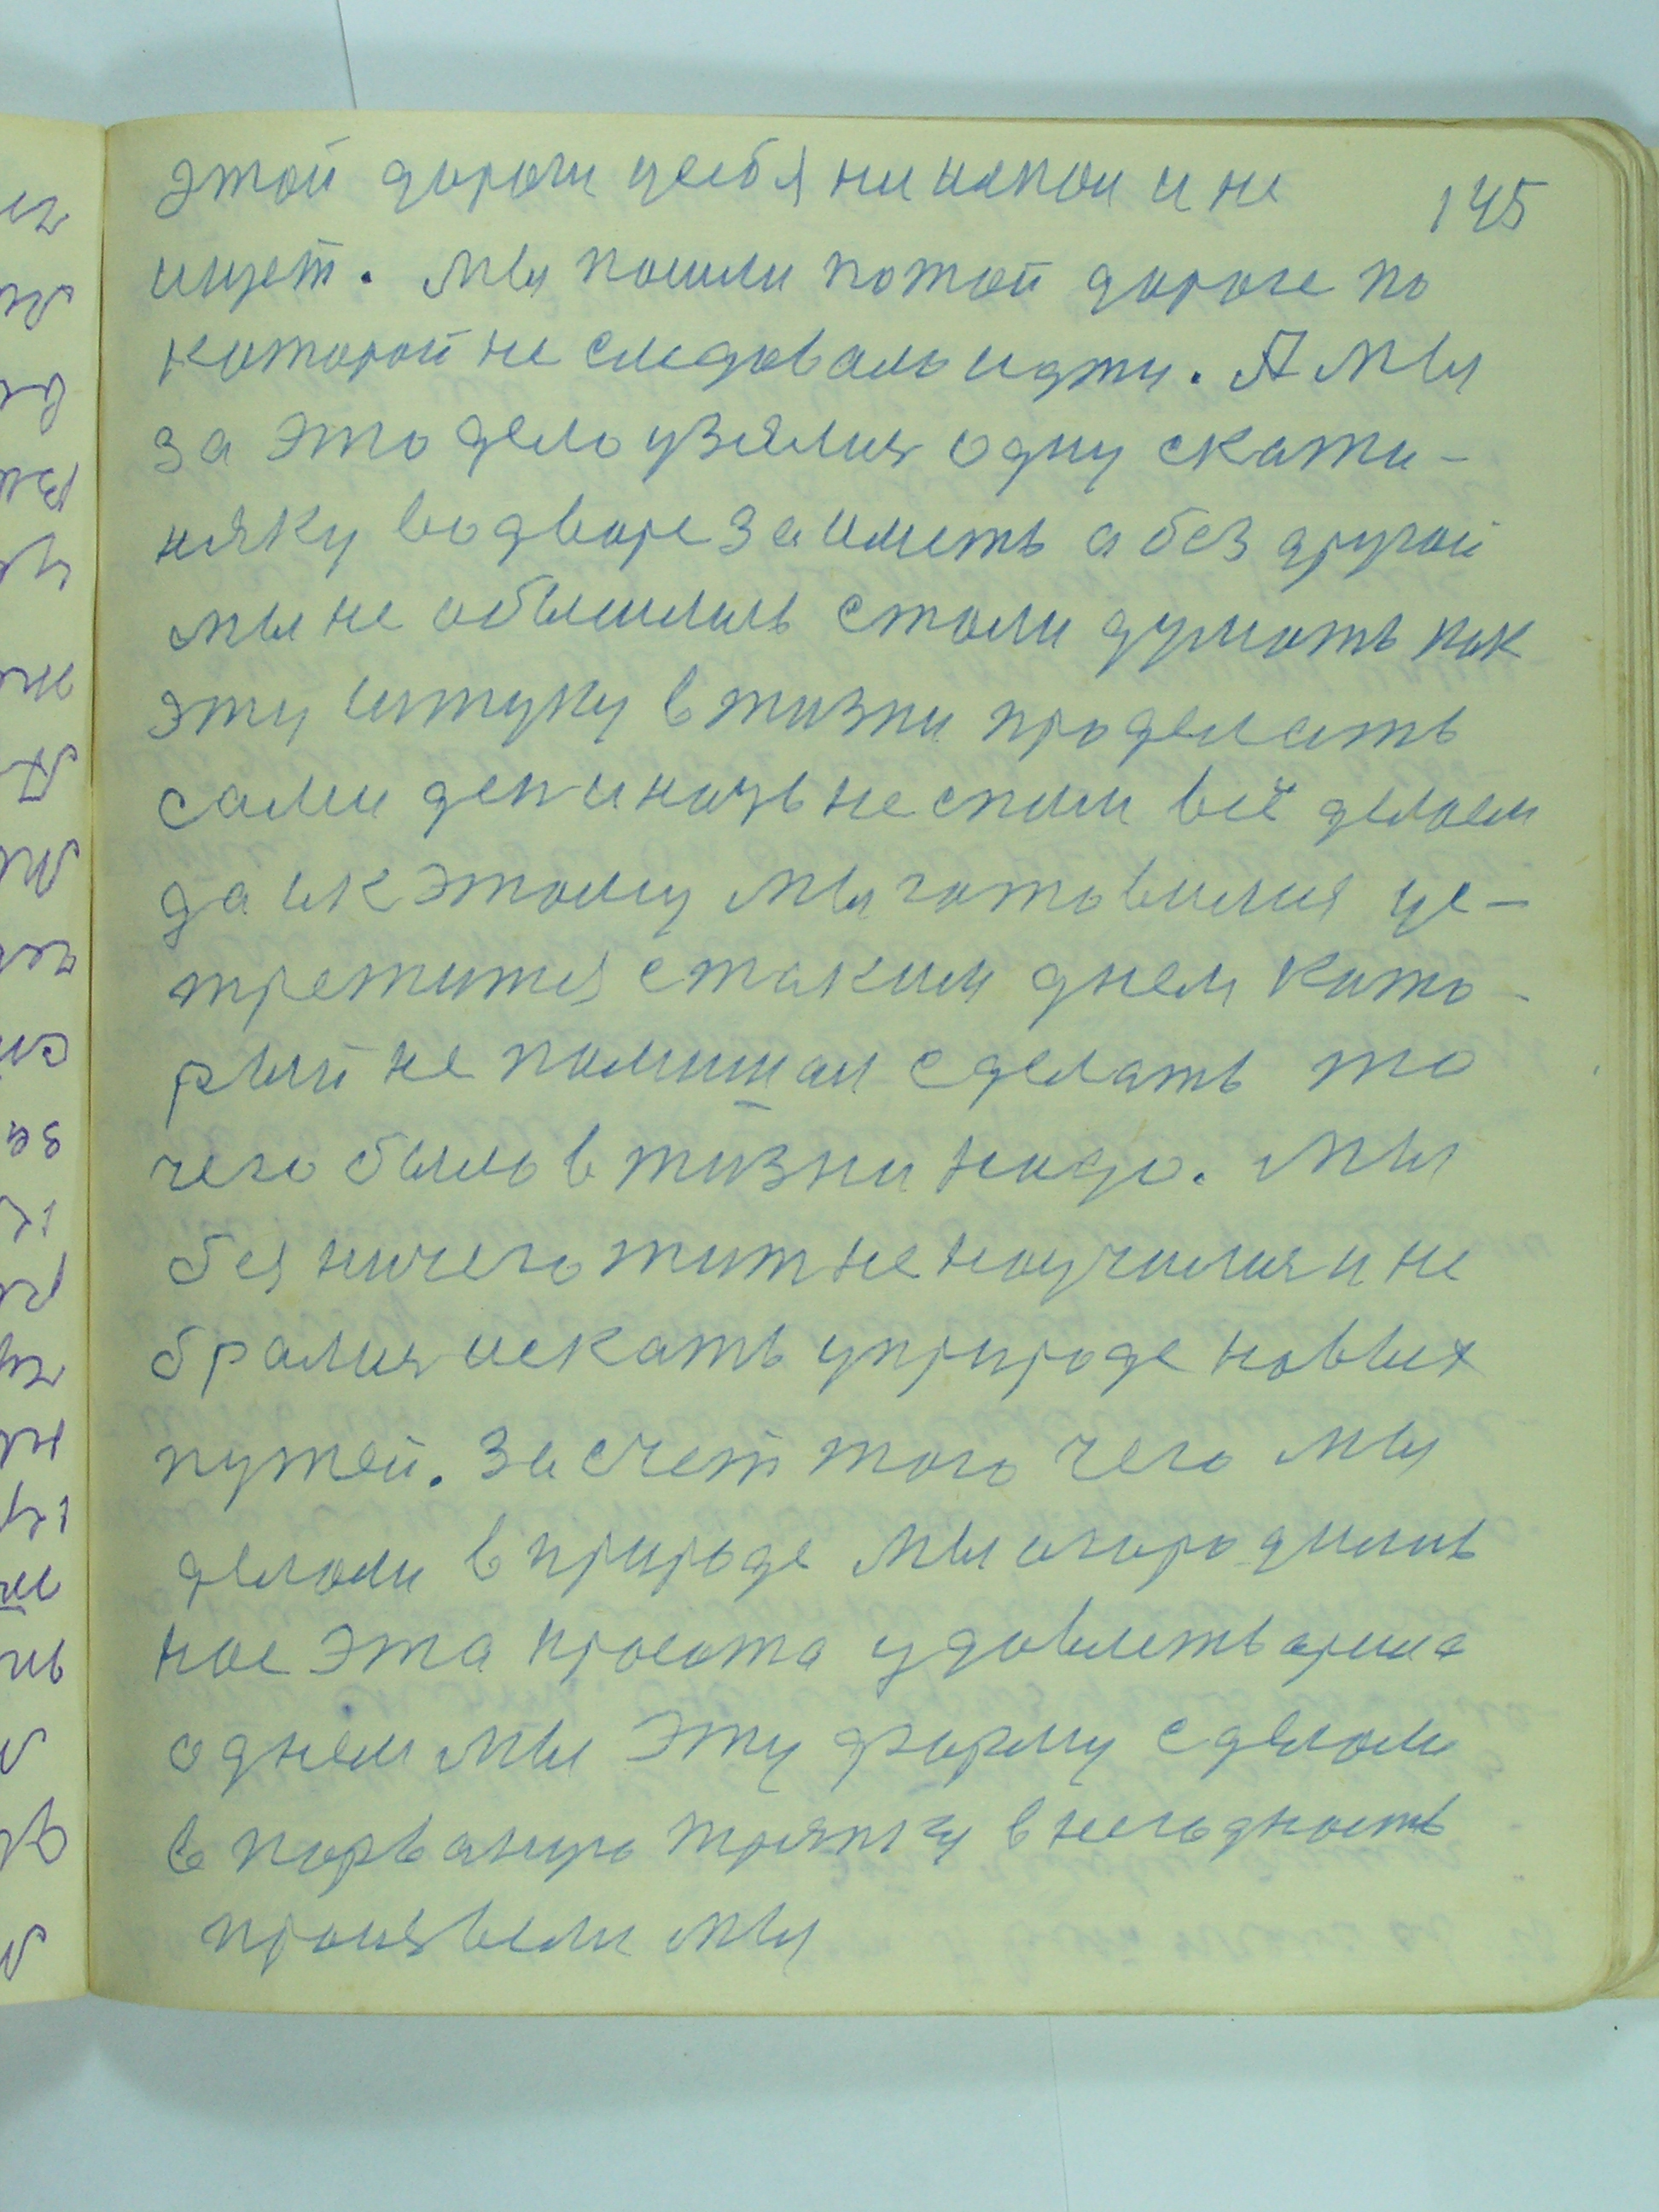 145
этой дороги усебя ни икпои и не
ищет. Мы пошли потой дороге по
которой не следовало идти. А мы
за это дело узялися одну скати-
няку водворе заиметь а без другой
мы не обышились стали думать как
эту штуку в жизни проделать
сами ден и ночь не спим всё делаем
да и к этому мы готовилися ус-
третится с таким днем кото-
рый не помишал сделать то
чего было в жизни надо. Мы
без ничего жит не научилися и не
бралися искать уприроде новых
путей. За счет того чего мы
делали в природе мы огородились
нас эта красота удовлетварила
однем мы эту форму сделали
в порваную тряпку в негодность
произвели мы